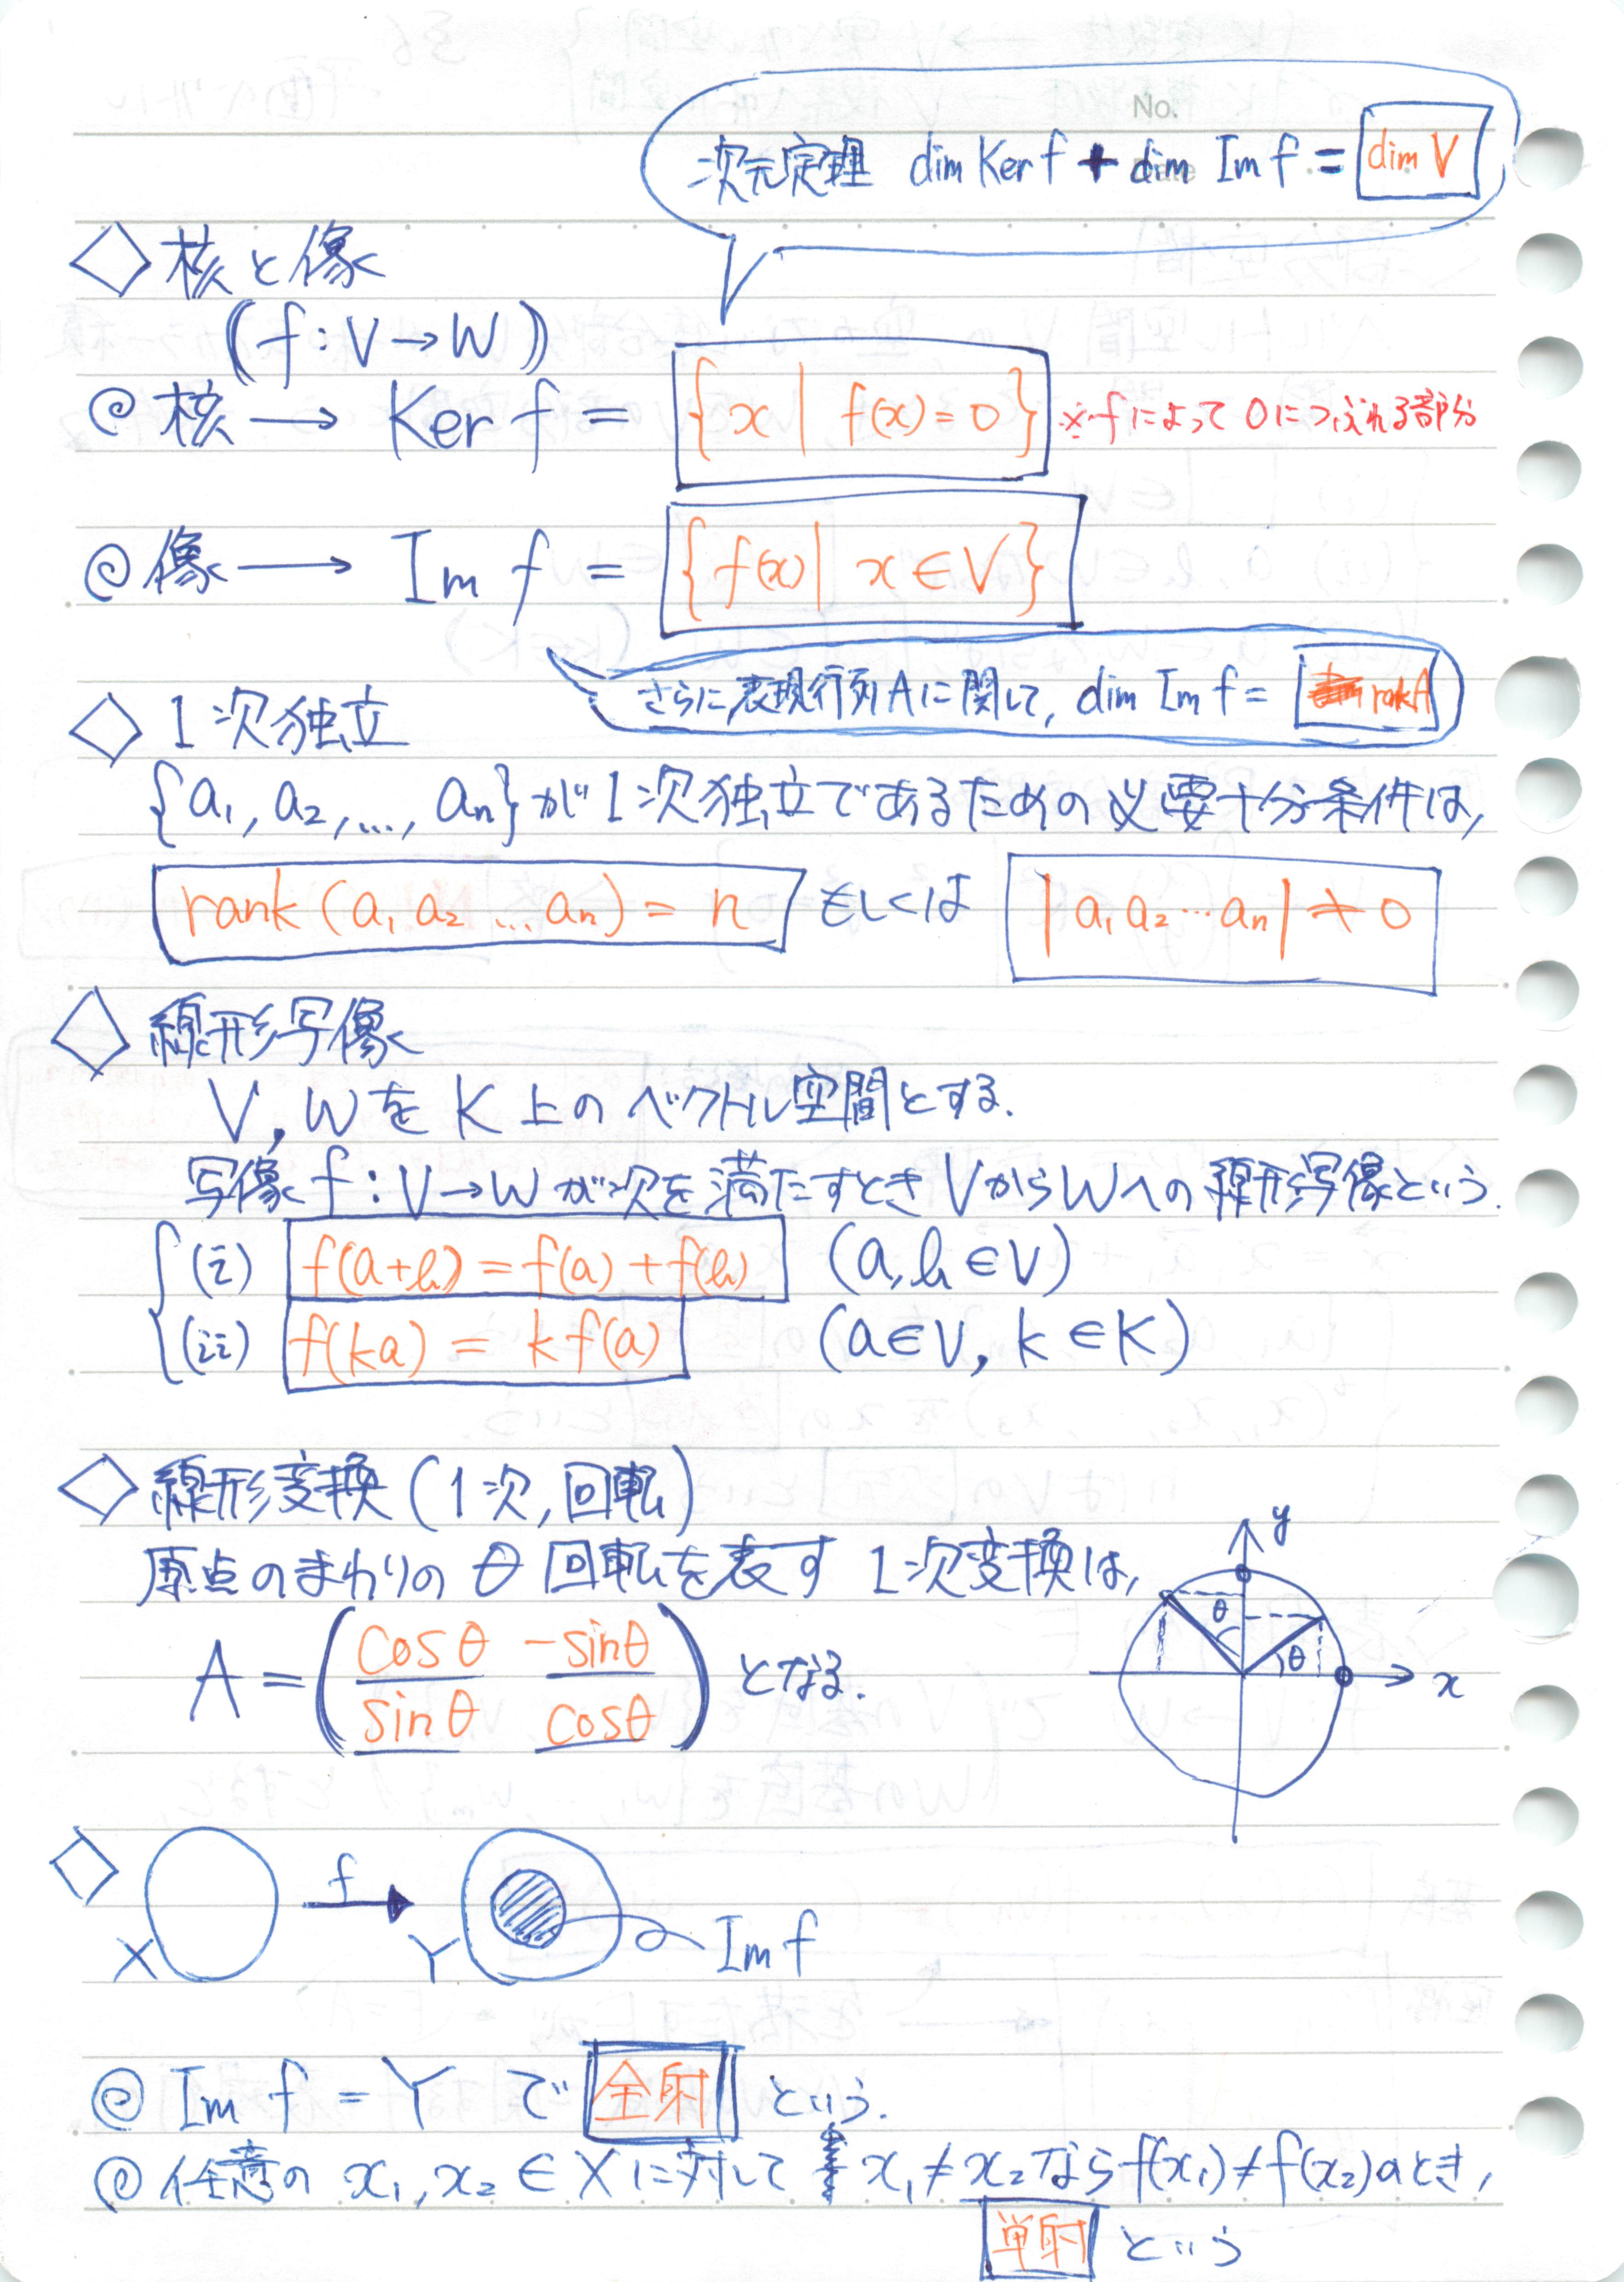 No.
Date
次元定理 dim Ker f + dim Im f = dim V
◇ 核と像
(f : V → W)
@ 核 → Ker f = { x | f(x) = 0 } ※fによって0につぶれる部分
@ 像 → Im f = { f(x) | x ∈ V }
さらに表現行列Aに関して, dim Im f = rakA
◇ 1次独立
{a₁, a₂, ..., aₙ}が1次独立であるための必要十分条件は,
rank (a₁ a₂ ... aₙ) = n もしくは | a₁ a₂ ... aₙ | ≠ 0
◇ 線形写像
V, WをK上のベクトル空間とする.
写像 f : V → W が次を満たすときVからWへの線形写像という.
(i) f(a+b) = f(a) + f(b) (a, b ∈ V)
(ii) f(ka) = k f(a) (a ∈ V, k ∈ K)
◇ 線形変換 (1次, 回転)
原点のまわりのθ回転を表す1次変換は,
A = ( cosθ -sinθ
sinθ cosθ ) となる.
y
θ
θ
x
◇ f
X Y Im f
@ Im f = Y で 全射 という.
@ 任意の x₁, x₂ ∈ X に対して x₁ ≠ x₂ ならf(x₁) ≠ f(x₂) のとき,
単射 という